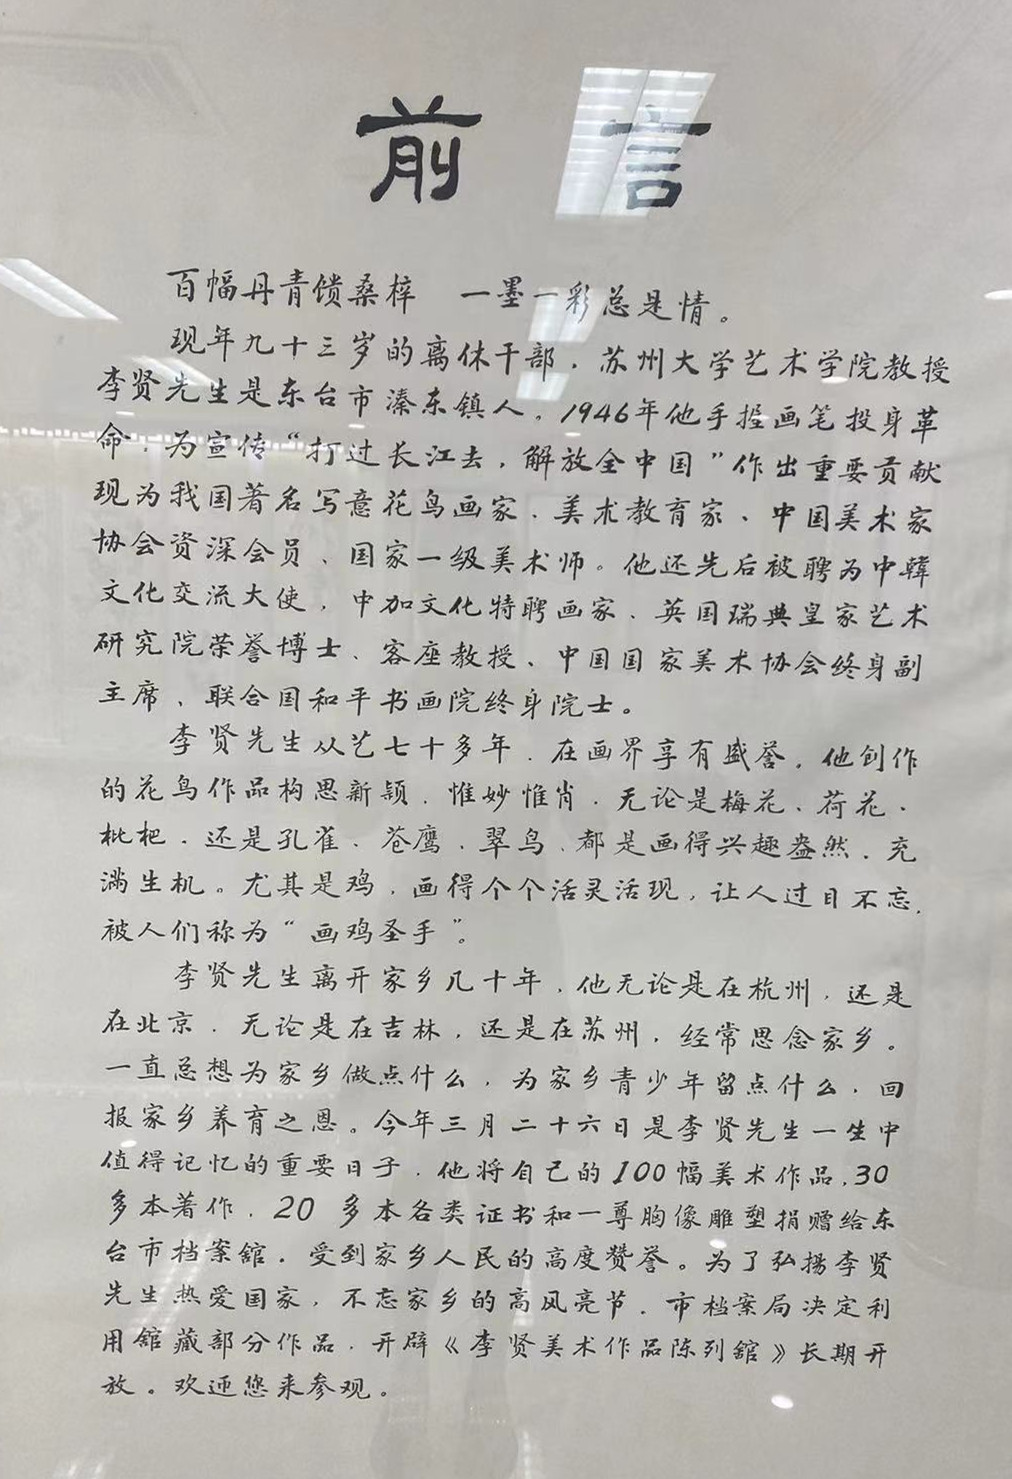 前言
百幅丹青馈桑梓 一墨一彩总是情。
现年九十三岁的离休干部，苏州大学艺术学院教授
李贤先生是东台市溱东镇人。1946年他手握画笔投身革
命，为宣传“打过长江去，解放全中国”作出重要贡献
现为我国著名写意花鸟画家、美术教育家、中国美术家
协会资深会员、国家一级美术师。他还先后被聘为中韓
文化交流大使，中加文化特聘画家、英国瑞典皇家艺术
研究院荣誉博士、客座教授、中国国家美术协会终身副
主席、联合国和平书画院终身院士。
李贤先生从艺七十多年，在画界享有盛誉。他创作
的花鸟作品构思新颖，惟妙惟肖，无论是梅花、荷花、
枇杷，还是孔雀、苍鹰、翠鸟，都是画得兴趣盎然，充
满生机。尤其是鸡，画得个个活灵活现，让人过目不忘，
被人们称为“画鸡圣手”。
李贤先生离开家乡几十年，他无论是在杭州，还是
在北京，无论是在吉林，还是在苏州，经常思念家乡。
一直总想为家乡做点什么，为家乡青少年留点什么，回
报家乡养育之恩。今年三月二十六日是李贤先生一生中
值得记忆的重要日子，他将自己的100幅美术作品，30
多本著作，20多本各类证书和一尊胸像雕塑捐赠给东
台市档案舘，受到家乡人民的高度赞誉。为了弘揚李贤
先生热爱国家，不忘家乡的高风亮节，市档案局决定利
用舘藏部分作品，开辟《李贤美术作品陈列舘》长期开
放。欢迎您来参观。